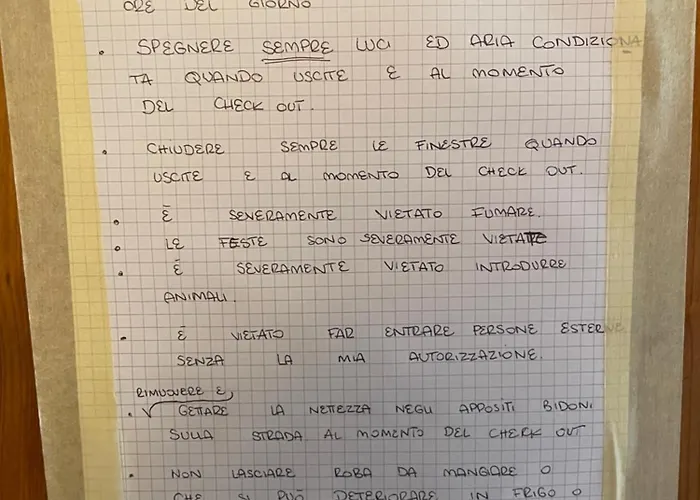 ORE DEL GIORNO
• SPEGNERE SEMPRE LUCI ED ARIA CONDIZIONA
TA QUANDO USCITE E AL MOMENTO
DEL CHECK OUT.
• CHIUDERE SEMPRE LE FINESTRE QUANDO
USCITE E AL MOMENTO DEL CHECK OUT.
• È SEVERAMENTE VIETATO FUMARE.
• LE FESTE SONO SEVERAMENTE VIETATE
• È SEVERAMENTE VIETATO INTRODURRE
ANIMALI.
• È VIETATO FAR ENTRARE PERSONE ESTERNE
SENZA LA MIA AUTORIZZAZIONE.
RIMUOVERE E
• GETTARE LA NETTEZZA NEGLI APPOSITI BIDONI
SULLA STRADA AL MOMENTO DEL CHECK OUT
• NON LASCIARE ROBA DA MANGIARE O
CHE SI PUÒ DETERIORARE IN FRIGO O